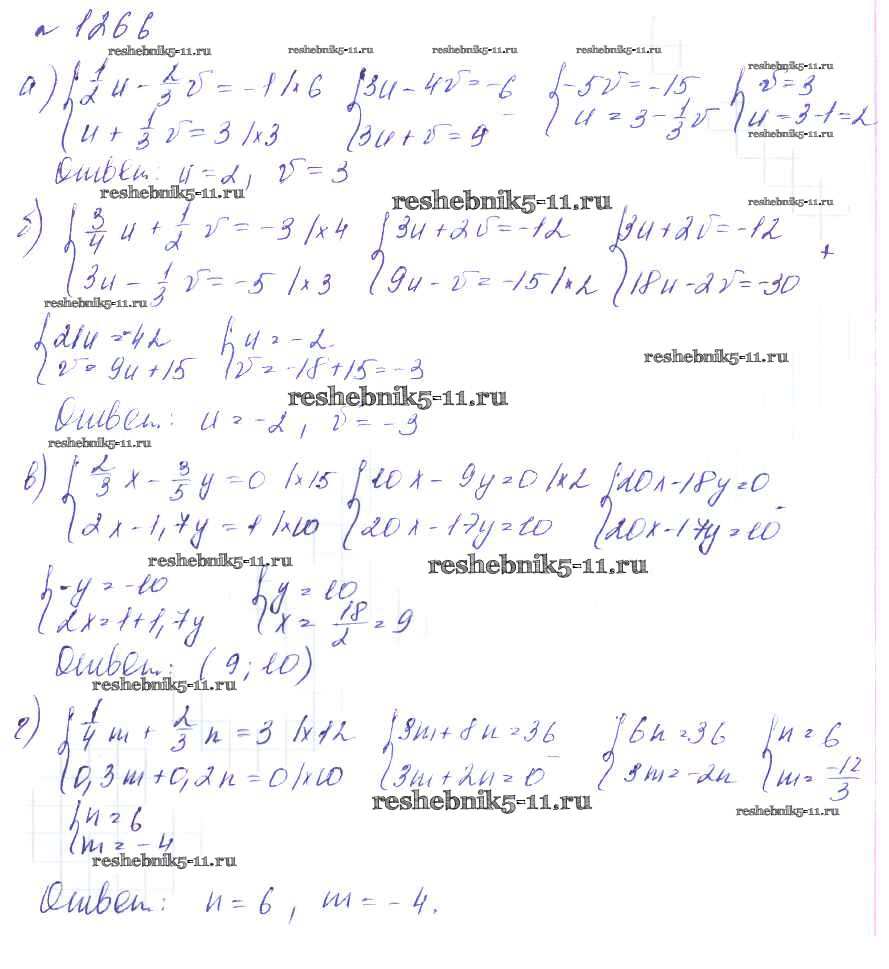 № 1266
reshebnik5-11.ru reshebnik5-11.ru reshebnik5-11.ru reshebnik5-11.ru reshebnik5-11.ru
а) { 1/2 u - 2/3 v = -1 | × 6 { 3u - 4v = -6 { -5v = -15 { v = 3
u + 1/3 v = 3 | × 3 3u + v = 9 - u = 3 - 1/3 v u = 3 - 1 = 2
reshebnik5-11.ru
Ответ: u = 2, v = 3
reshebnik5-11.ru reshebnik5-11.ru reshebnik5-11.ru
б) { 3/4 u + 1/2 v = -3 | × 4 { 3u + 2v = -12 { 3u + 2v = -12 +
3u - 1/3 v = -5 | × 3 9u - v = -15 | × 2 18u - 2v = -30
reshebnik5-11.ru
{ 21u = -42 { u = -2
v = 9u + 15 v = -18 + 15 = -3
reshebnik5-11.ru
reshebnik5-11.ru
Ответ: u = -2, v = -3
reshebnik5-11.ru
в) { 2/3 x - 3/5 y = 0 | × 15 { 10x - 9y = 0 | × 2 { 20x - 18y = 0 -
2x - 1,7y = 1 | × 10 20x - 17y = 10 20x - 17y = 10
reshebnik5-11.ru reshebnik5-11.ru
{ -y = -10 { y = 10
2x = 1 + 1,7y x = 18/2 = 9
Ответ: (9; 10)
reshebnik5-11.ru
г) { 1/4 m + 2/3 n = 3 | × 12 { 3m + 8n = 36 - { 6n = 36 { n = 6
0,3m + 0,2n = 0 | × 10 3m + 2n = 0 3m = -2n m = -12/3
reshebnik5-11.ru reshebnik5-11.ru
{ n = 6
m = -4
reshebnik5-11.ru
Ответ: n = 6, m = -4.